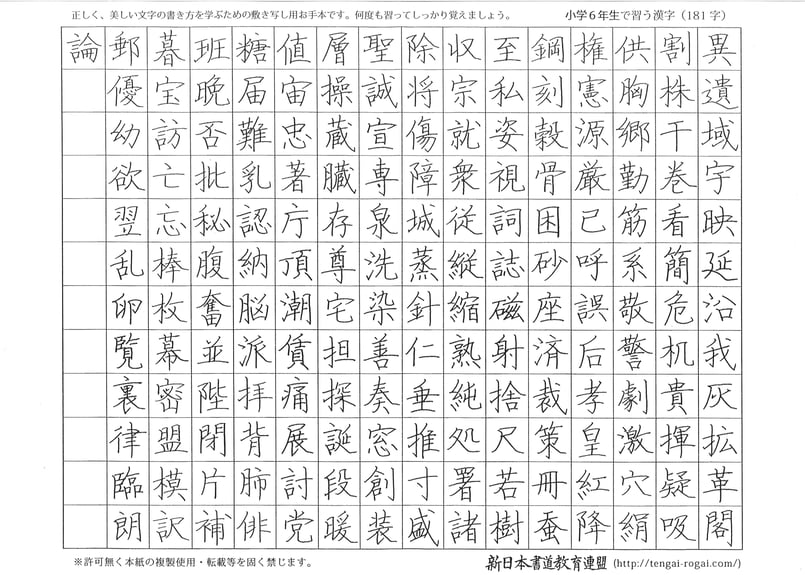 正しく、美しい文字の書き方を学ぶための敷き写し用お手本です。何度も習ってしっかり覚えましょう。
小学6年生で習う漢字（181字）
異遺域宇映延沿我灰拡革閣
割株干巻看簡危机貴揮疑吸
供胸郷勤筋系敬警劇激穴絹
権憲源厳己呼誤后孝皇紅降
鋼刻穀骨困砂座済裁策冊蚕
至私姿視詞誌磁射捨尺若樹
収宗就衆従縦縮熟純処署諸
除将傷障城蒸針仁垂推寸盛
聖誠宣専泉洗染善奏窓創装
層操蔵臓存尊宅担探誕段暖
値宙忠著庁頂潮賃痛展討党
糖届難乳認納脳派拝背肺俳
班晩否批秘腹奮並陛閉片補
暮宝訪亡忘棒枚幕密盟模訳
郵優幼欲翌乱卵覧裏律臨朗
論
※許可無く本紙の複製使用・転載等を固く禁じます。
新日本書道教育連盟 (http://tengai-rogai.com/)